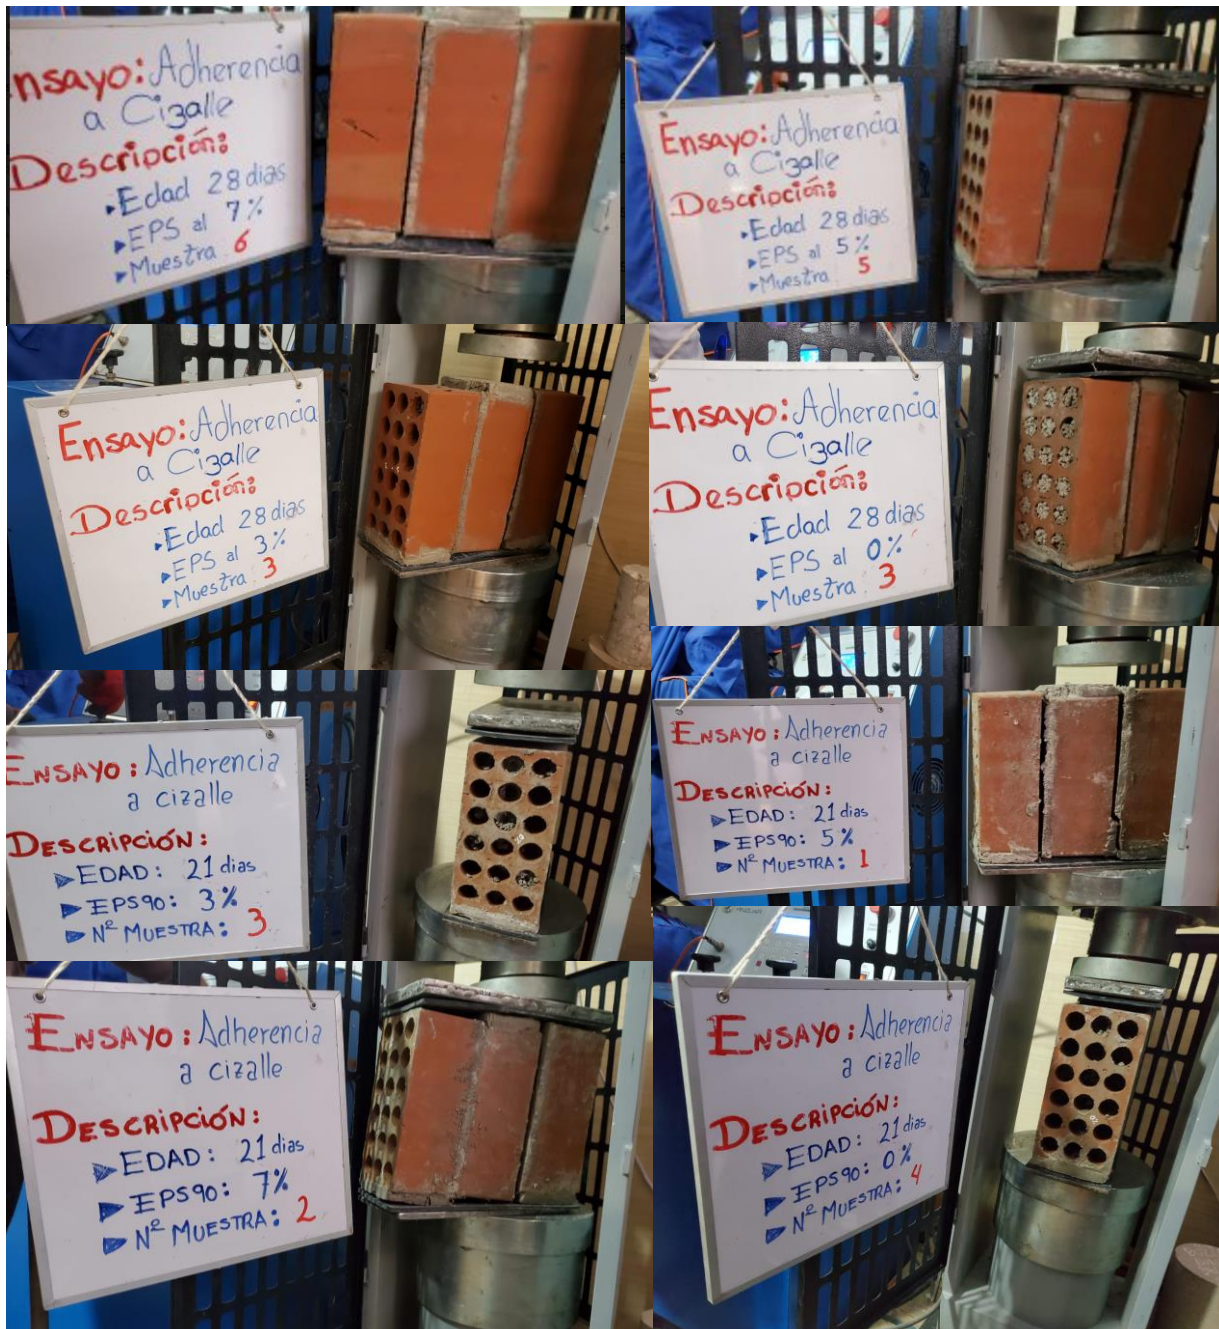 nsayo: Adherencia
a Cizalle
Descripción:
▸Edad 28 dias
▸EPS al 7%
▸Muestra 6
Ensayo: Adherencia
a Cizalle
Descripción:
▸Edad 28 dias
▸EPS al 5%
▸Muestra 5
Ensayo: Adherencia
a Cizalle
Descripción:
▸Edad 28 dias
▸EPS al 3%
▸Muestra 3
Ensayo: Adherencia
a Cizalle
Descripción:
▸Edad 28 dias
▸EPS al 0%
▸Muestra 3
ENSAYO: Adherencia
a cizalle
DESCRIPCIÓN:
▸EDAD: 21 dias
▸EPS90: 3%
▸Nº MUESTRA: 3
ENSAYO: Adherencia
a cizalle
DESCRIPCIÓN:
▸EDAD: 21 dias
▸EPS90: 5%
▸Nº MUESTRA: 1
ENSAYO: Adherencia
a cizalle
DESCRIPCIÓN:
▸EDAD: 21 dias
▸EPS90: 7%
▸Nº MUESTRA: 2
ENSAYO: Adherencia
a cizalle
DESCRIPCIÓN:
▸EDAD: 21 dias
▸EPS90: 0%
▸Nº MUESTRA: 4